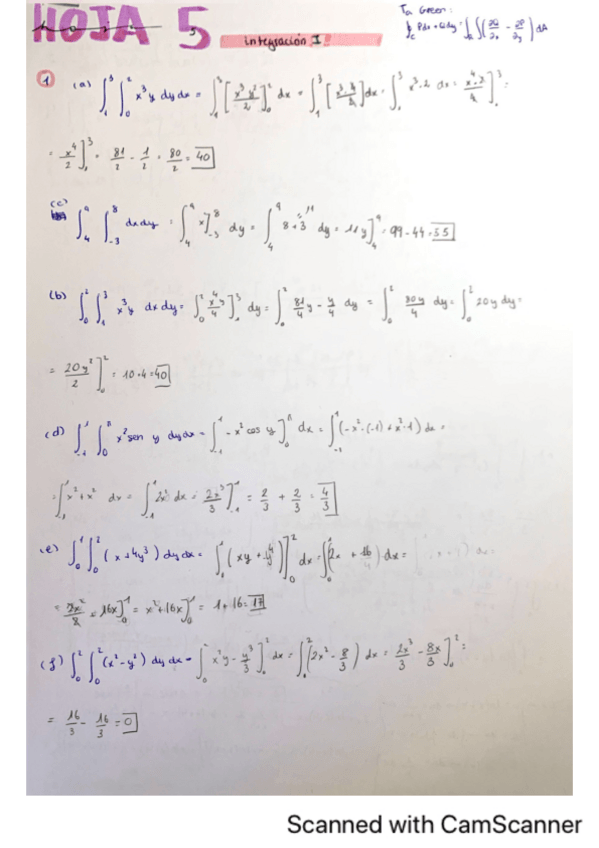 HOJA 5
hoja 5
integración I
Ta Green:
∮_C Pdx + Qdy = ∬_D (∂Q/∂x − ∂P/∂y) dA
1 (a) ∫_1^3 ∫_0^2 x³y dy dx = ∫_1^3 [x³y²/2]_0^2 dx = ∫_1^3 [x³·4/2] dx = ∫_1^3 x³·2 dx = x⁴·2/4 ]_1^3 =
= x⁴/2 ]_1^3 = 81/2 − 1/2 = 80/2 = 40
(c) ∫_4^9 ∫_-3^8 dx dy = ∫_4^9 x]_-3^8 dy = ∫_4^9 8+3 dy = 11y]_4^9 = 99−44=55
(b) ∫_0^2 ∫_1^3 x³y dx dy = ∫_0^2 x⁴y/4 ]_1^3 dy = ∫_0^2 81/4 y − y/4 dy = ∫_0^2 80y/4 dy = ∫_0^2 20y dy =
= 20y²/2 ]_0^2 = 10·4=40
(d) ∫_-1^1 ∫_0^π x² sen y dy dx = ∫_-1^1 −x² cos y ]_0^π dx = ∫_-1^1 (−x²·(−1) + x²·1) dx =
= ∫_-1^1 x²+x² dx = ∫_-1^1 2x² dx = 2x³/3 ]_-1^1 = 2/3 + 2/3 = 4/3
(e) ∫_0^1 ∫_0^2 (x+4y³) dy dx = ∫_0^1 (xy + y⁴)]_0^2 dx = ∫_0^1 (2x + 16) dx =
= 2x²/2 + 16x]_0^1 = x²+16x]_0^1 = 1+16=17
(f) ∫_0^2 ∫_0^2 (x²−y²) dy dx = ∫_0^2 x²y − y³/3 ]_0^2 dx = ∫_0^2 (2x² − 8/3) dx = 2x³/3 − 8x/3 ]_0^2 =
= 16/3 − 16/3 = 0
Scanned with CamScanner